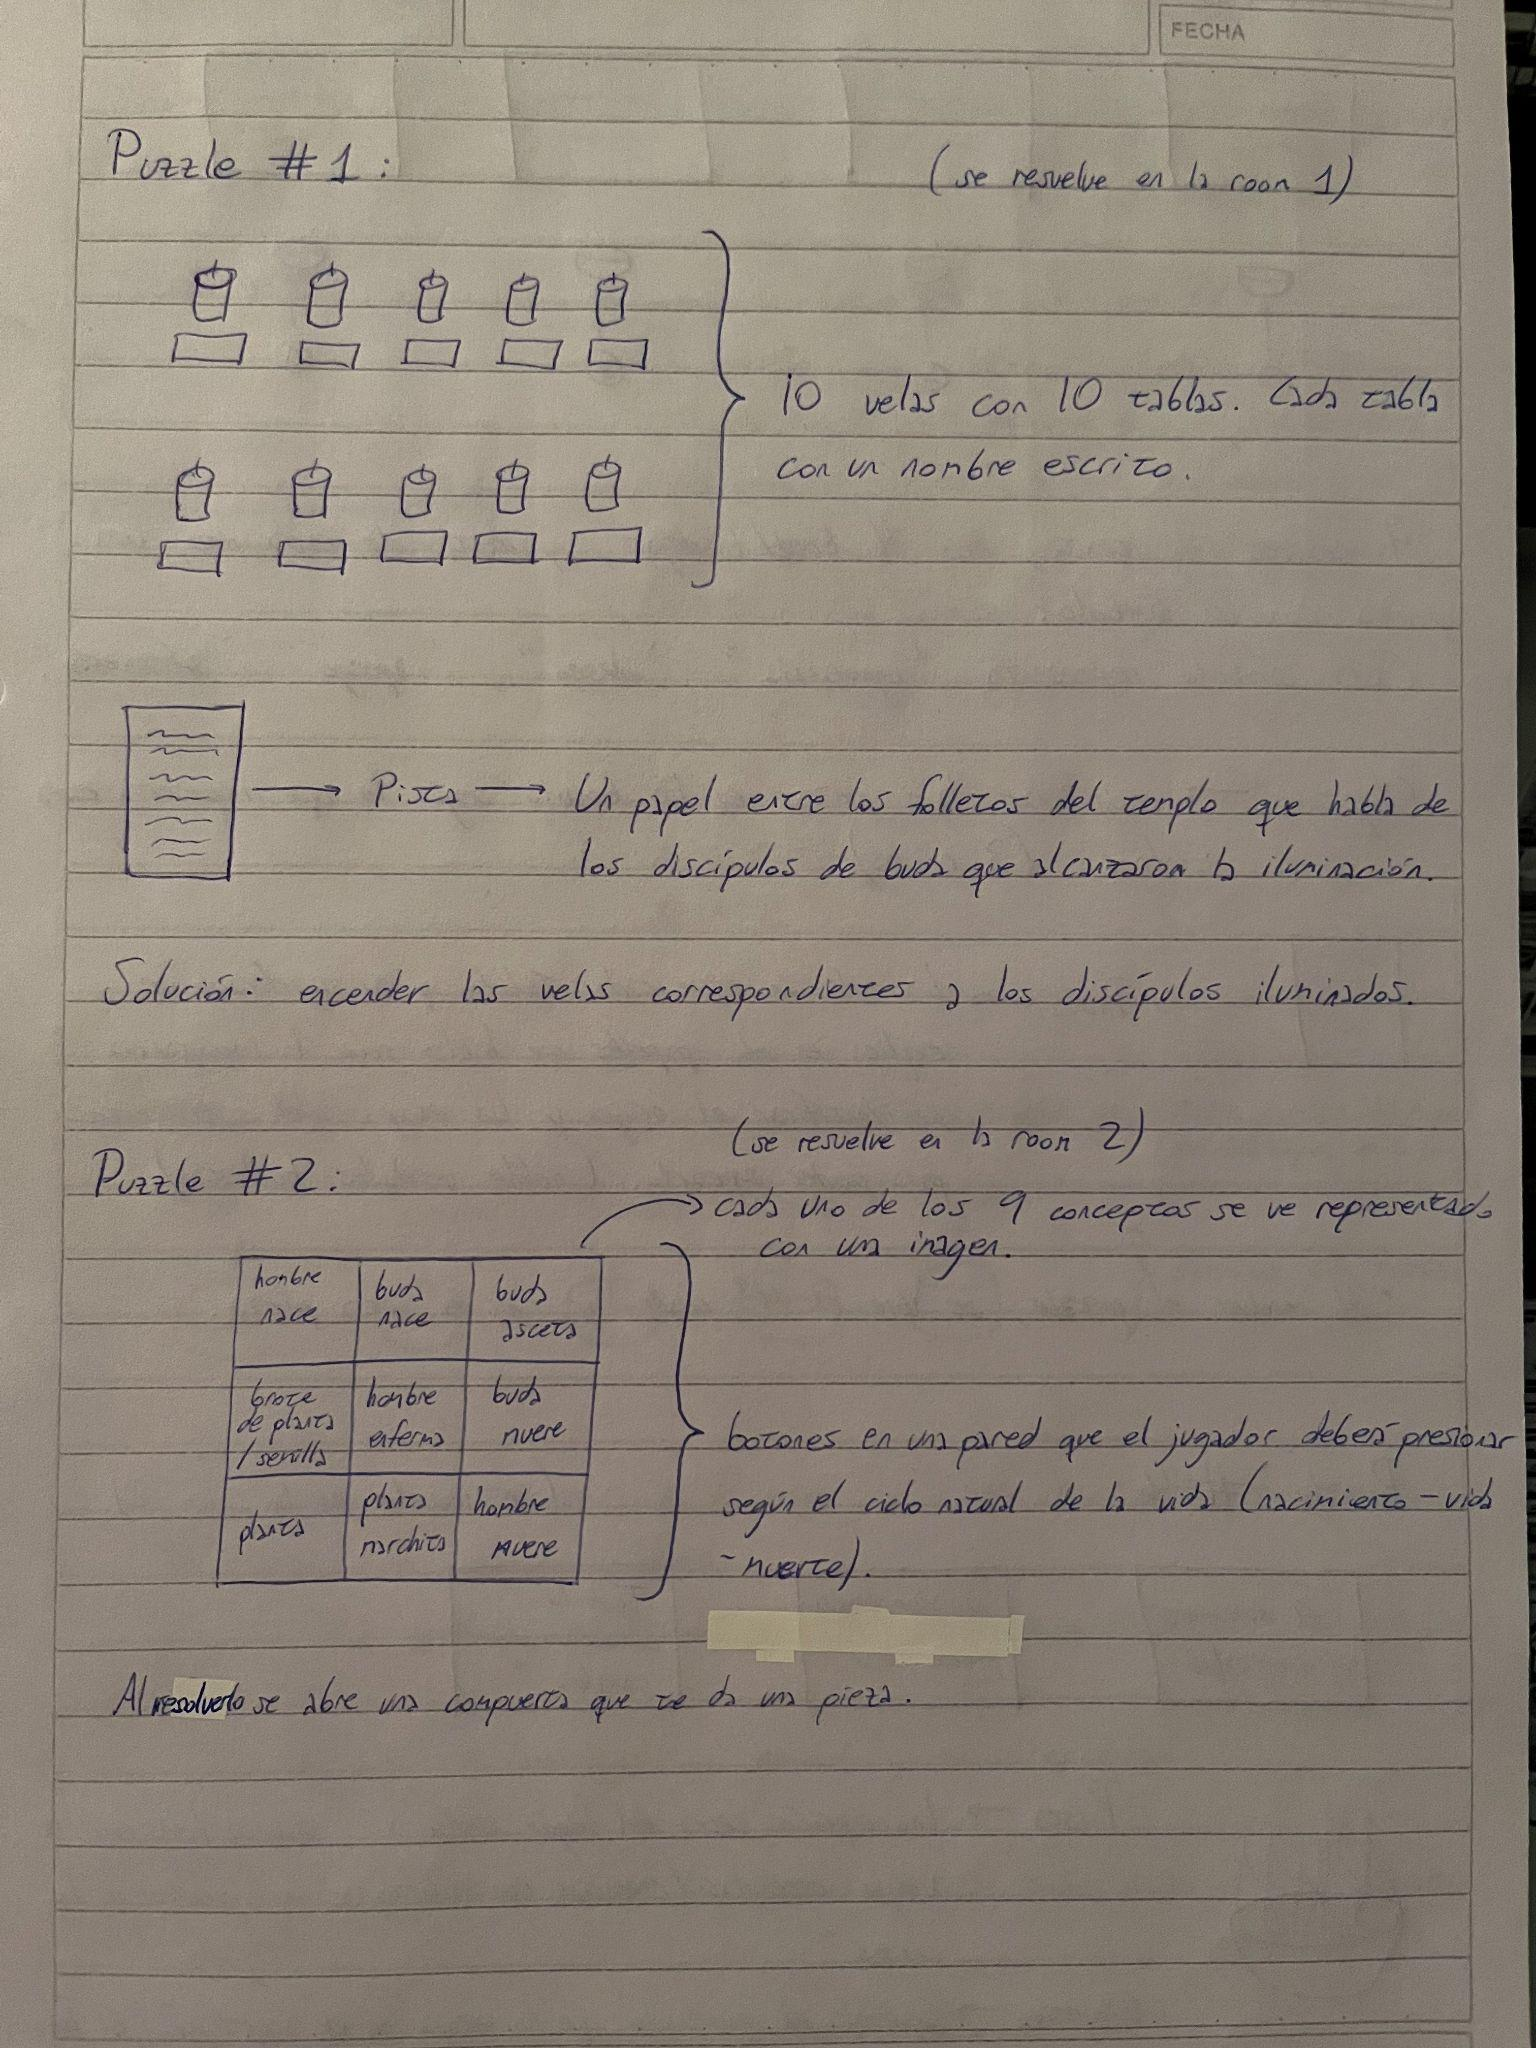 FECHA
Puzzle #1:
(se resuelve en la room 1)
10 velas con 10 tablas. Cada tabla
con un nombre escrito.
Pista
Un papel entre los folletos del templo que habla de
los discípulos de buda que alcanzaron la iluminación.
Solución: encender las velas correspondientes a los discípulos iluminados.
(se resuelve en la room 2)
Puzzle #2:
cada uno de los 9 conceptos se ve representado
con una imagen.
hombre nace
buda nace
buda asceta
brote de planta / semilla
hombre enfermo
buda muere
planta
planta marchita
hombre muere
botones en una pared que el jugador deberá presionar
según el ciclo natural de la vida (nacimiento - vida
- muerte).
Al resolverlo se abre una compuerta que te da una pieza.